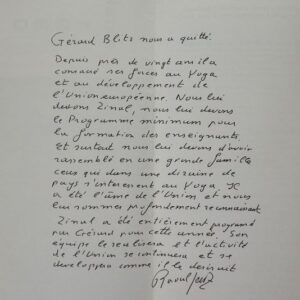 Gérard Blitz nous a quitté.
Depuis près de vingt ans il a
consacré ses forces au Yoga
et au développement de
l'Union européenne. Nous lui
devons Zinal, nous lui devons
le Programme minimum pour
la formation des enseignants.
Et surtout nous lui devons d'avoir
rassemblé en une grande famille
ceux qui dans une dizaine de
pays s'intéressent au Yoga. Il
a été l'âme de l'Union et nous
lui sommes profondément reconnaissant.
Zinal a été entièrement programmé
par Gérard pour cette année. Son
équipe le réalisera et l'activité
de l'Union se continuera et se
développera comme il le désirait
Raoul